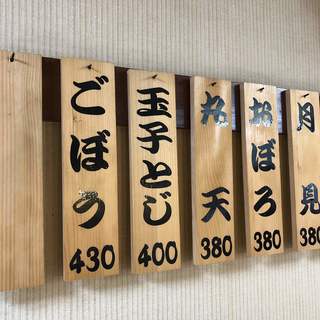 ごぼう
430
玉子とじ
400
丸天
380
おぼろ
380
月見
380